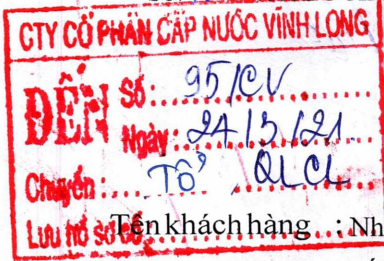 CTY CỔ PHẦN CẤP NƯỚC VĨNH LONG
ĐẾN
Số: 95/CV
Ngày: 24/3/21
Chuyển: Tổ QLCL
Lưu hồ sơ số
Tên khách hàng : Nh